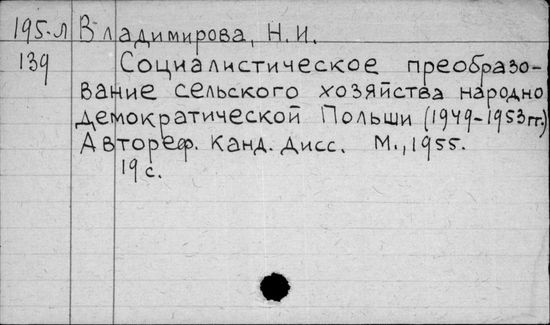 195-л Владимирова, Н.И.
139 Социалистическое преобразо-
вание сельского хозяйства народно
демократической Польши (1949-1953гг.)
Автореф. канд. дисс. М., 1955.
19 с.